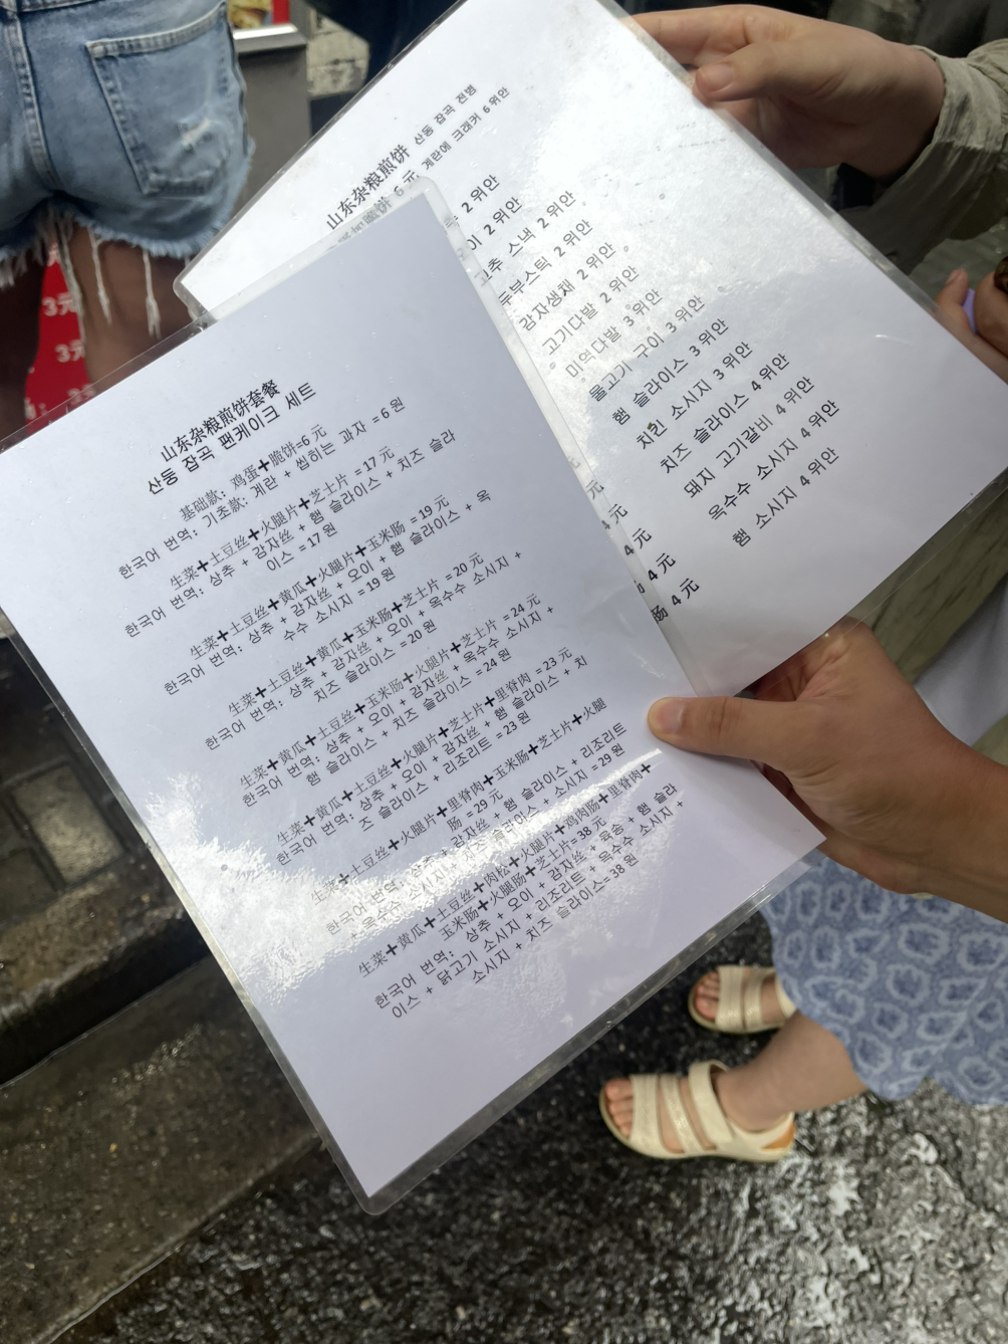 山东杂粮煎饼 산동 잡곡 전병
6 元 계란에 크래커 6 위안
2 위안
이 2 위안
고추 스낵 2 위안
두부스틱 2 위안
감자생채 2 위안
고기다발 2 위안
미역다발 3 위안
물고기 구이 3 위안
햄 슬라이스 3 위안
치킨 소시지 3 위안
치즈 슬라이스 4 위안
돼지 고기갈비 4 위안
옥수수 소시지 4 위안
햄 소시지 4 위안
元
4 元
4 元
4 元
肠 4 元
山东杂粮煎饼套餐
산동 잡곡 팬케이크 세트
基础款: 鸡蛋+脆饼=6 元
한국어 번역: 기초款: 계란 + 씹히는 과자 =6 원
生菜+土豆丝+火腿片+芝士片 =17 元
한국어 번역: 상추 + 감자丝 + 햄 슬라이스 + 치즈 슬라
이스 =17 원
生菜+土豆丝+黄瓜+火腿片+玉米肠 =19 元
한국어 번역: 상추 + 감자丝 + 오이 + 햄 슬라이스 + 옥
수수 소시지 =19 원
生菜+土豆丝+黄瓜+玉米肠+芝士片 =20 元
한국어 번역: 상추 + 감자丝 + 오이 + 옥수수 소시지 +
치즈 슬라이스 =20 원
生菜+黄瓜+土豆丝+玉米肠+火腿片+芝士片 =24 元
한국어 번역: 상추 + 오이 + 감자丝 + 옥수수 소시지 +
햄 슬라이스 + 치즈 슬라이스 =24 원
生菜+黄瓜+土豆丝+火腿片+芝士片+里脊肉 =23 元
한국어 번역: 상추 + 오이 + 감자丝 + 햄 슬라이스 + 치
즈 슬라이스 + 리조리트 =23 원
生菜+土豆丝+火腿片+里脊肉+玉米肠+芝士片+火腿
肠 =29 元
한국어 번역: 상추 + 감자丝 + 햄 슬라이스 + 리조리트
+ 옥수수 소시지 + 치즈 슬라이스 + 소시지 =29 원
生菜+黄瓜+土豆丝+肉松+火腿片+鸡肉肠+里脊肉+
玉米肠+火腿肠+芝士片=38 元
한국어 번역: 상추 + 오이 + 감자丝 + 육송 + 햄 슬라
이스 + 닭고기 소시지 + 리조리트 + 옥수수 소시지 +
소시지 + 치즈 슬라이스 =38 원
3元
3元